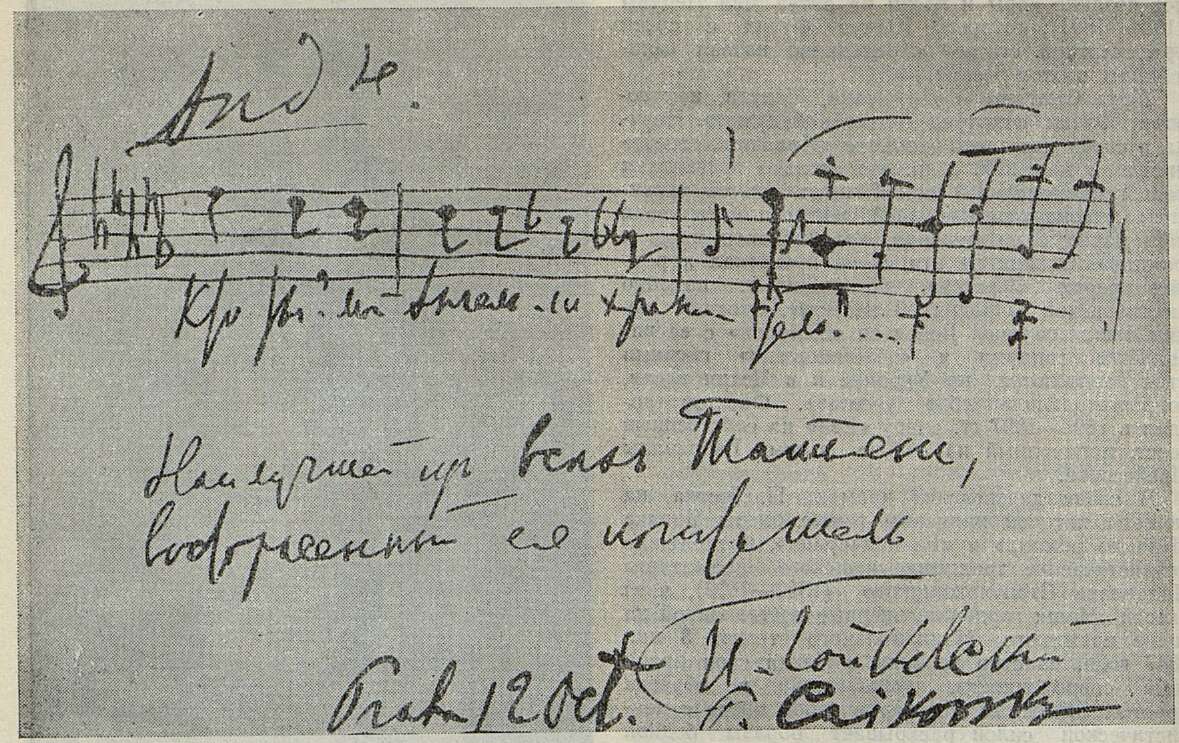 And te.
Кто ты: мой Ангелъ-ли хранитель....
Наилучшей изъ всѣхъ Татьянъ,
восторженный ея почитатель
П. Чайковскій
Praha 12 Oct. P. Čajkovsky